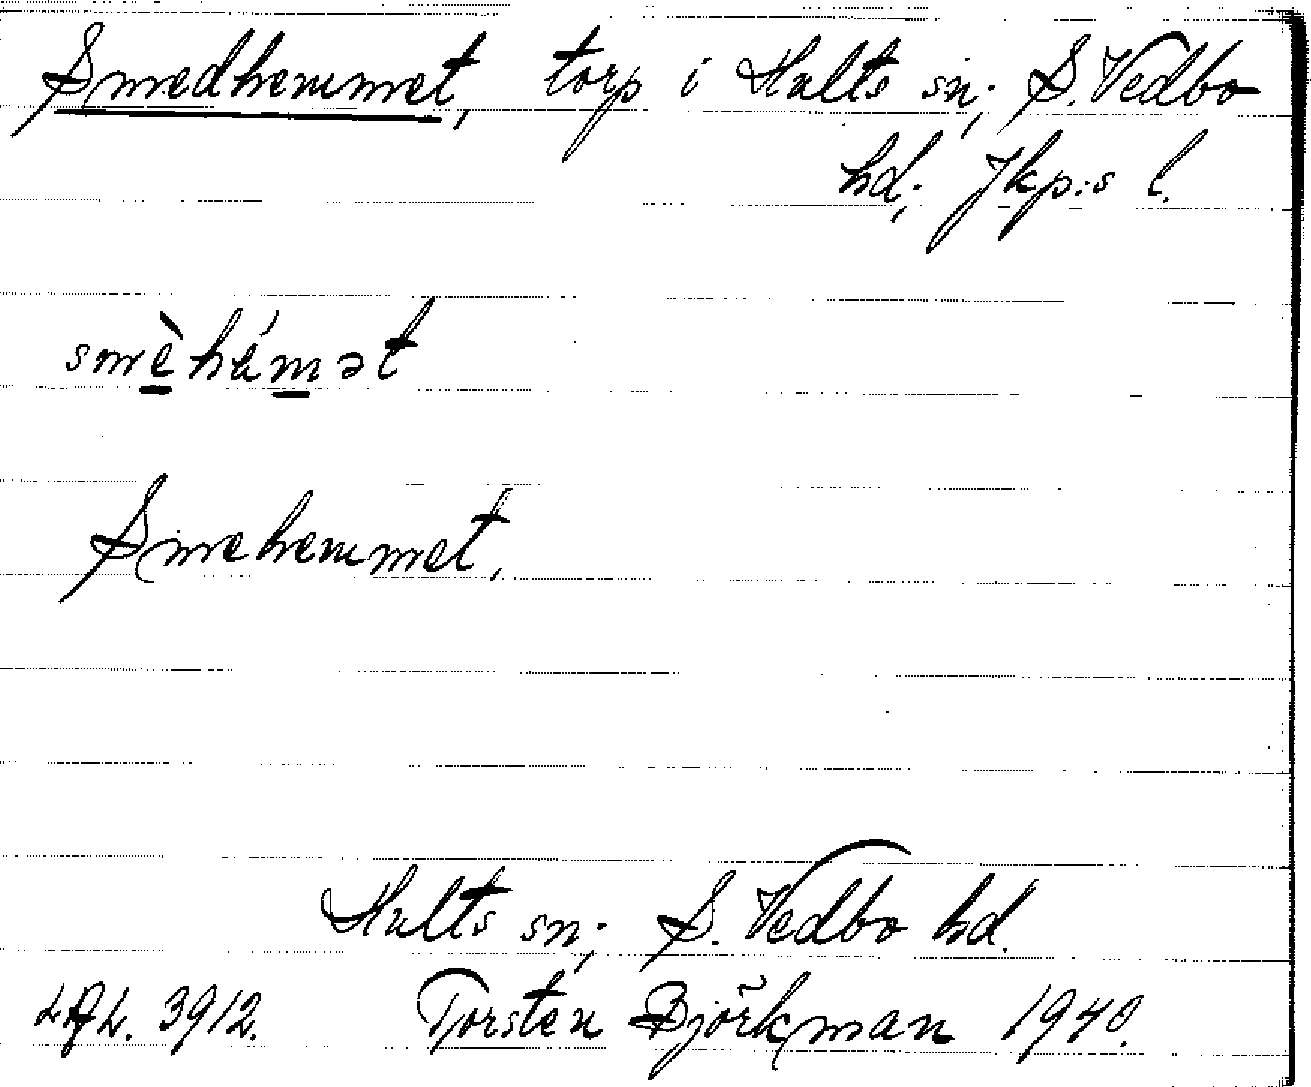 Smedhemmet, torp i Hults sn; S. Vedbo
hd; Jkp:s l.
smèhémət
Smehemmet.
Hults sn; S. Vedbo hd.
3912. Torsten Björkman 1940.